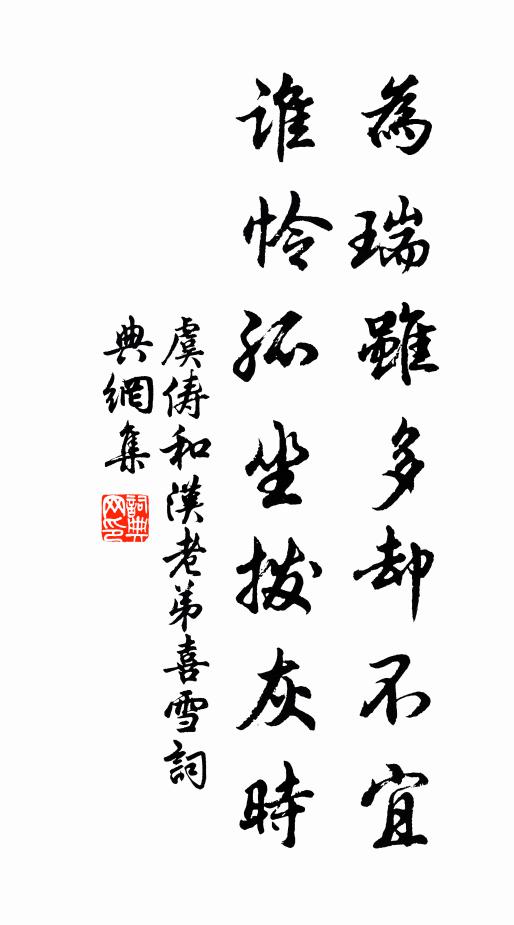 為瑞雖多却不宜
誰怜孤坐撥灰時
虞儔和漢老弟喜雪詞
典網集
詞典網印